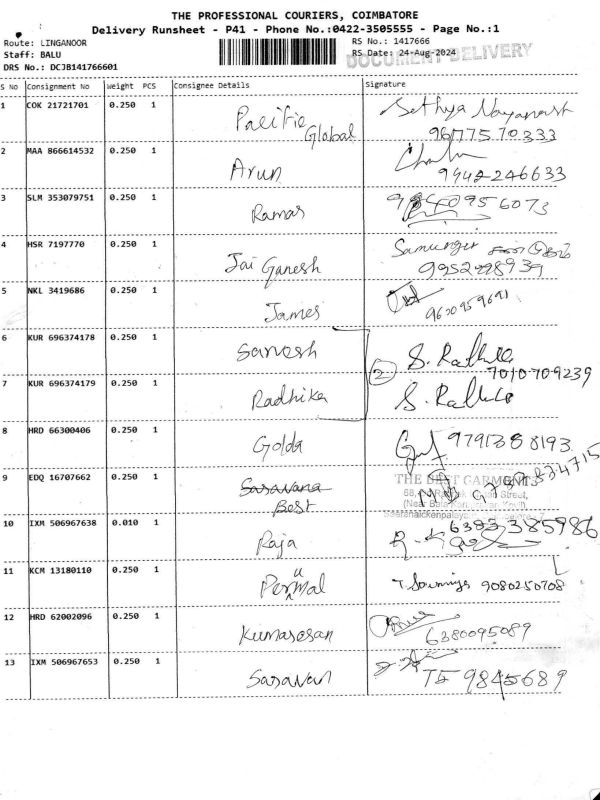 THE PROFESSIONAL COURIERS, COIMBATORE
Delivery Runsheet - P41 - Phone No.:0422-3505555 - Page No.:1
Route: LINGANOOR RS No.: 1417666
Staff: BALU RS Date: 24-Aug-2024
DOCUMENT DELIVERY
DRS No.: DCJB141766601
S No Consignment No Weight PCS Consignee Details Signature
1 COK 21721701 0.250 1 Pacific Global Sethya Nayanash
9677570333
2 MAA 866614532 0.250 1 Arun
9942246633
3 SLM 353079751 0.250 1 Ramas
4 HSR 7197770 0.250 1 Jai Ganesh
5 NKL 3419686 0.250 1 James
9620959691
6 KUR 696374178 0.250 1 Sarvesh
2 7010709239
7 KUR 696374179 0.250 1 Radhika
8 HRD 66300406 0.250 1 Golda 9791388193
9 EDQ 16707662 0.250 1 Saravana
Best
THE BEST GARMENTS
10 IXM 506967638 0.010 1 Raja 6383385986
11 KCM 13180110 0.250 1 Perumal 9080250708
12 HRD 62002096 0.250 1 Kumaresan
6380095089
13 IXM 506967653 0.250 1 Saravan 9845689